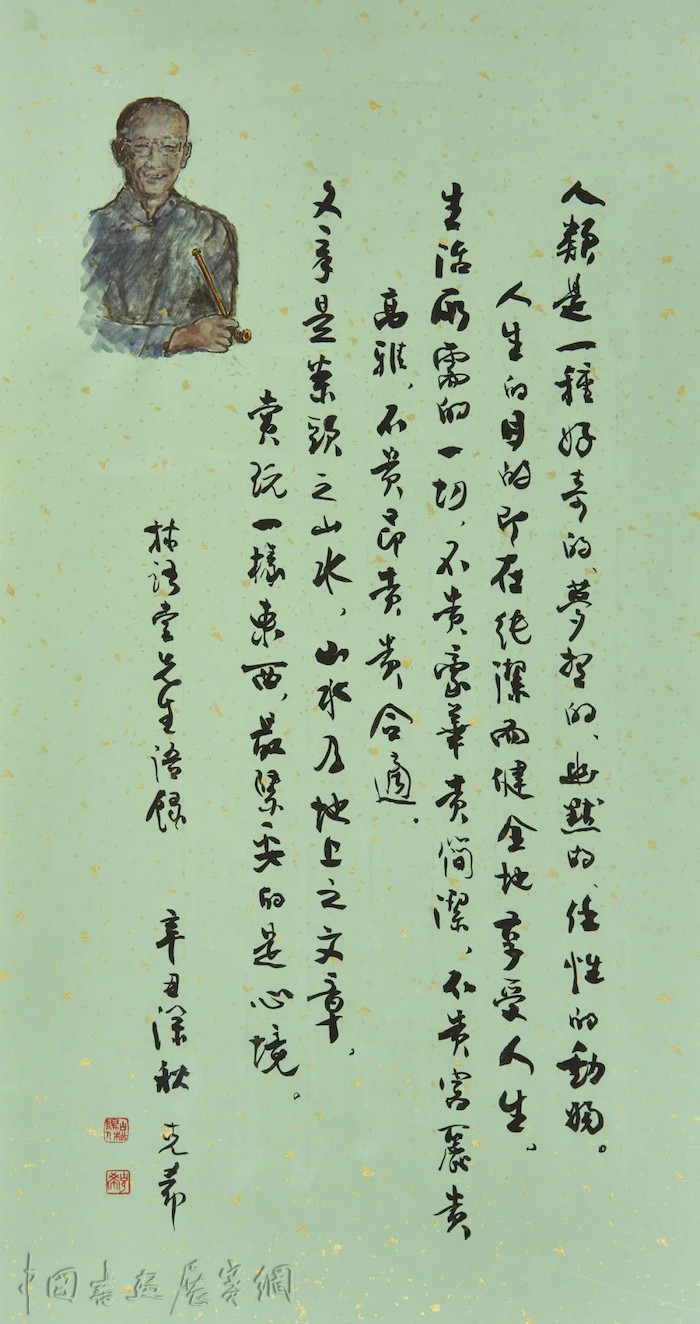 人類是一種好奇的、夢想的、幽默的、任性的動物。
人生的目的即在純潔而健全地享受人生,
生活所需的一切,不貴豪華貴簡潔,不貴富麗貴
高雅,不貴昂貴貴合適。
文章是案頭之山水,山水乃地上之文章,
賞玩一樣東西,最緊要的是心境。
林語堂先生語錄 辛丑深秋 克希
中國書法展賽網